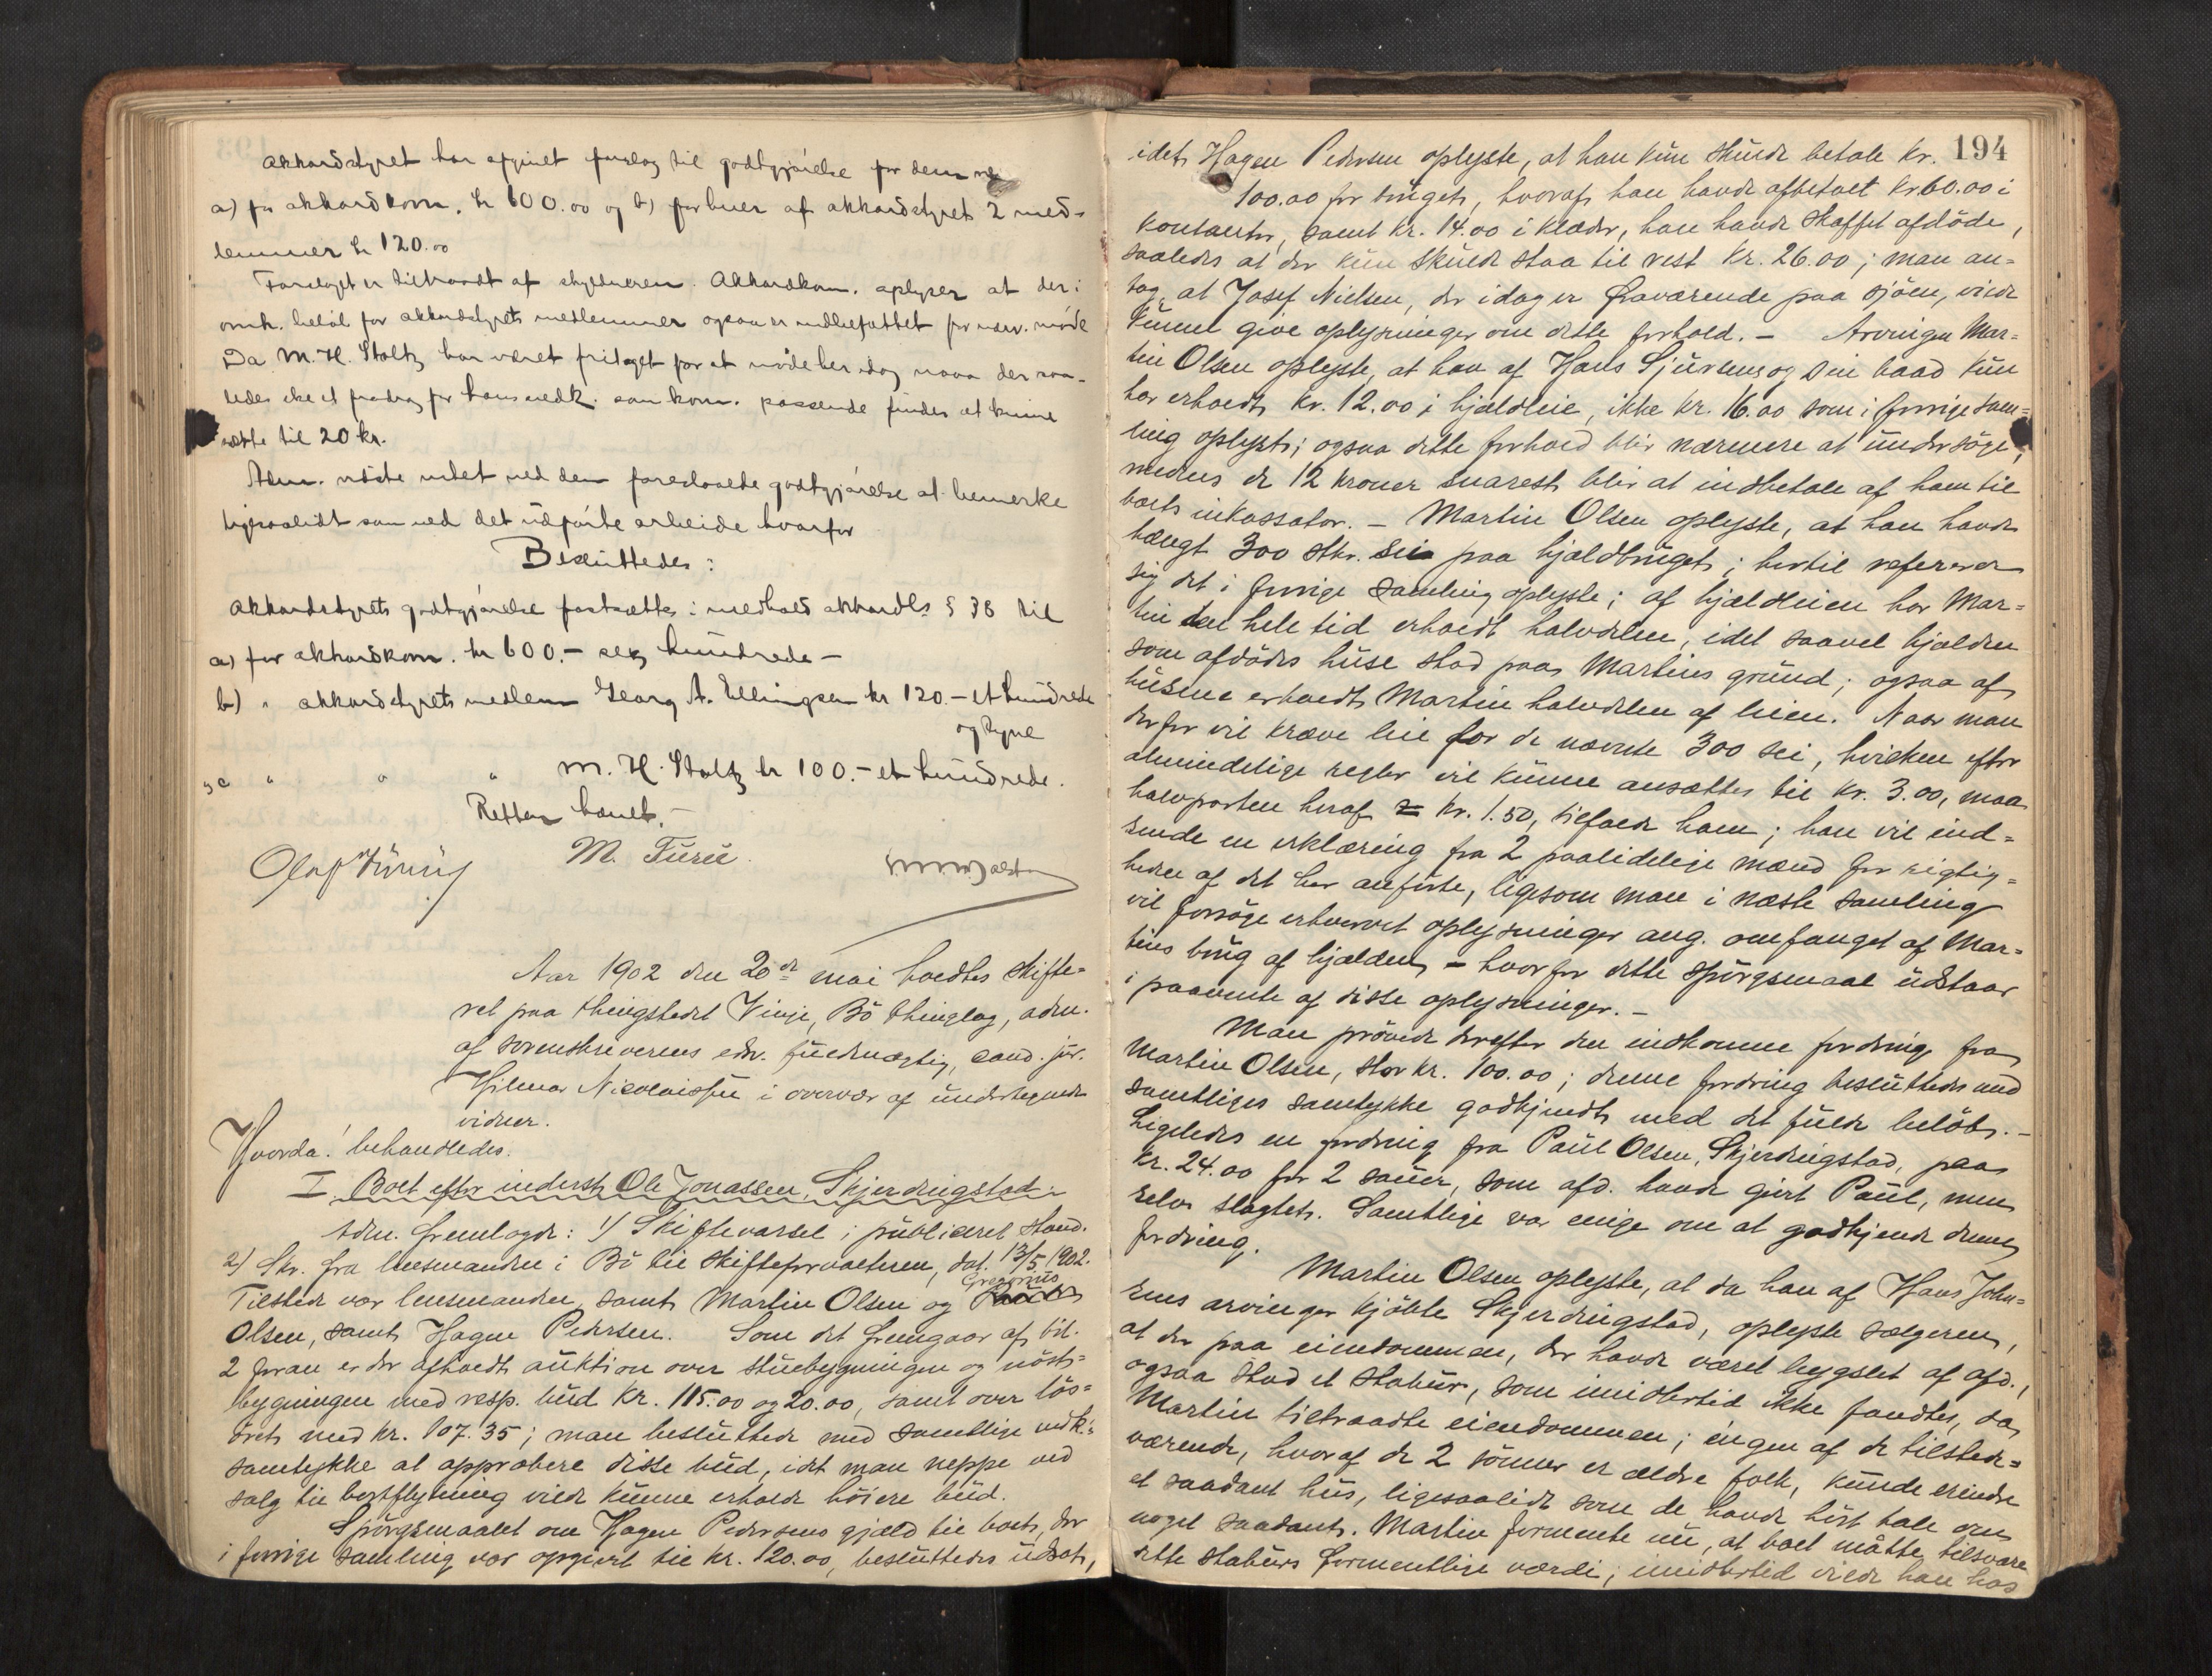 Akkordstyret har afgivet forslag til godtgjørelse for dem
a) for akkordkom. kr 600.00 og b) for hver af akkordstyrets 2 med-
lemmer kr 120.00
Forslaget er tiltraadt af skyldneren. Akkordkom. oplyser at der i
omh. beløb for akkordstyrets medlemmer ogsaa er indbefattet for nærv. møde
Da M. H. Stoltz har været fritaget for at møde her idag maa der saa-
ledes ske et fradrag for hans vedk. som kom. passende finder at kunne
sætte til 20 kr.
Adm. vidste intet ved den foreslaaede godtgjørelse at bemerke
ligesaalidt som ved det udførte arbeide hvorfor
Besluttedes:
Akkordstyrets godtgjørelse fastsættes i medhold akkordls § 38 til
a) for akkordkom. kr 600.- seks hundrede -
b) " akkordstyrets medlem Georg A. Ellingsen kr 120.- et hundrede
og tyve
" c " " " M. H. Stoltz kr 100.- et hundrede.
Retten hævet.
M. Furu.
Aar 1902 den 20de mai holdtes skifte-
ret paa thingstedet Vinje, Bö thinglag, adm.
af sorenskriverens edsv. fuldmægtig, cand. jur.
Hilmar Nicolaissen i overvær af undertegnede
vidner.
Hvorda! behandledes.
I. Boet efter inderst Ole Jonassen, Skjerdingstad.
Adm. fremlagde: 1) Skiftevarsel i publiceret stand.
2) Skr. fra lensmanden i Bö til skifteforvalteren, dat. 13/5 1902.
Gregorius
Tilstede var lensmanden, samt Martin Olsen og
Olsen, samt Hagen Pedersen. Som det fremgaar af bil.
2 foran er der afholdt auktion over stuebygningen og nöst-
bygningen med resp. bud kr. 115.00 og 20.00, samt over lös-
öret med kr. 107.35; man besluttede med samtlige vedk.s
samtykke at approbere disse bud, idet man neppe ved
salg til bortflytning vilde kunne erholde höiere bud.
Spörgsmaalet om Hagen Pedersens gjæld til boet, der
i forrige samling var opgivet til kr. 120.00, besluttedes udsat,
194
idet Hagen Pedersen oplyste, at han kun skulde betale kr.
100.00 for bruget, hvoraf han havde afbetalt kr. 60.00 i
kontanter, samt kr. 14.00 i klæder, han havde skaffet afdöde,
saaledes at der kun skulde staa til rest kr. 26.00; man an-
tog, at Josef Nielsen, der idag er fraværende paa sjöen, vilde
kunne give oplysninger om dette forhold. - Arvingen Mar-
tin Olsen oplyste, at han af Hans Sjursens og sin baad kun
har erholdt kr. 12.00 i hjeldleie, ikke kr. 16.00 som i forrige sam-
ling oplyst; ogsaa dette forhold blir nærmere at undersöge,
medens de 12 kroner snarest blir at indbetale af ham til
boets inkassator. - Martin Olsen oplyste, at han havde
hængt 300 stkr. sei paa hjeldbruget; hertil refererer
sig det i forrige samling oplyste; af hjeldleien har Mar-
tin den hele tid erholdt halvdelen, idet saavel hjelden
som afdödes huse stod paa Martins grund; ogsaa af
husene erholdt Martin halvdelen af leien. Naar man
derfor vil kræve leie for de nævnte 300 sei, hvilken efter
almindelige regler vil kunne ansættes til kr. 3.00, maa
halvparten heraf = kr. 1.50, tilfalde ham; han vil ind-
sende en erklæring fra 2 paalidelige mænd for rigtig-
heden af det her anførte, ligesom man i næste samling
vil forsöge erhvervet oplysninger ang. omfanget af Mar-
tins brug af hjelden, - hvorfor dette spörgsmaal udstaar
i paavente af disse oplysninger. -
Man prövede derefter den indkomne fordring fra
Martin Olsen, stor kr. 100.00; denne fordring besluttedes med
samtliges samtykke godkjendt med det fulde belöb. -
Ligeledes en fordring fra Paul Olsen, Skjerdingstad, paa
kr. 24.00 for 2 sauer, som afd. havde givet Paul, men
selv slagtet. Samtlige var enige om at godkjende denne
fordring.
Martin Olsen oplyste, at da han af Hans John-
sens arvinger kjöbte Skjerdingstad, oplyste sælgeren,
at der paa eiendommen, der havde været bygslet af afd.,
ogsaa stod et stabur, som imidlertid ikke fandtes, da
Martin tiltraadte eiendommen; ingen af de tilstede-
værende, hvoraf de 2 sönner er ældre folk, kunde erindre
et saadant hus, ligesaalidt som de havde hört tale om
noget saadant. Martin formente nu, at boet måtte tilsvare
dette staburs formentlige værdi; imidlertid vilde han hos